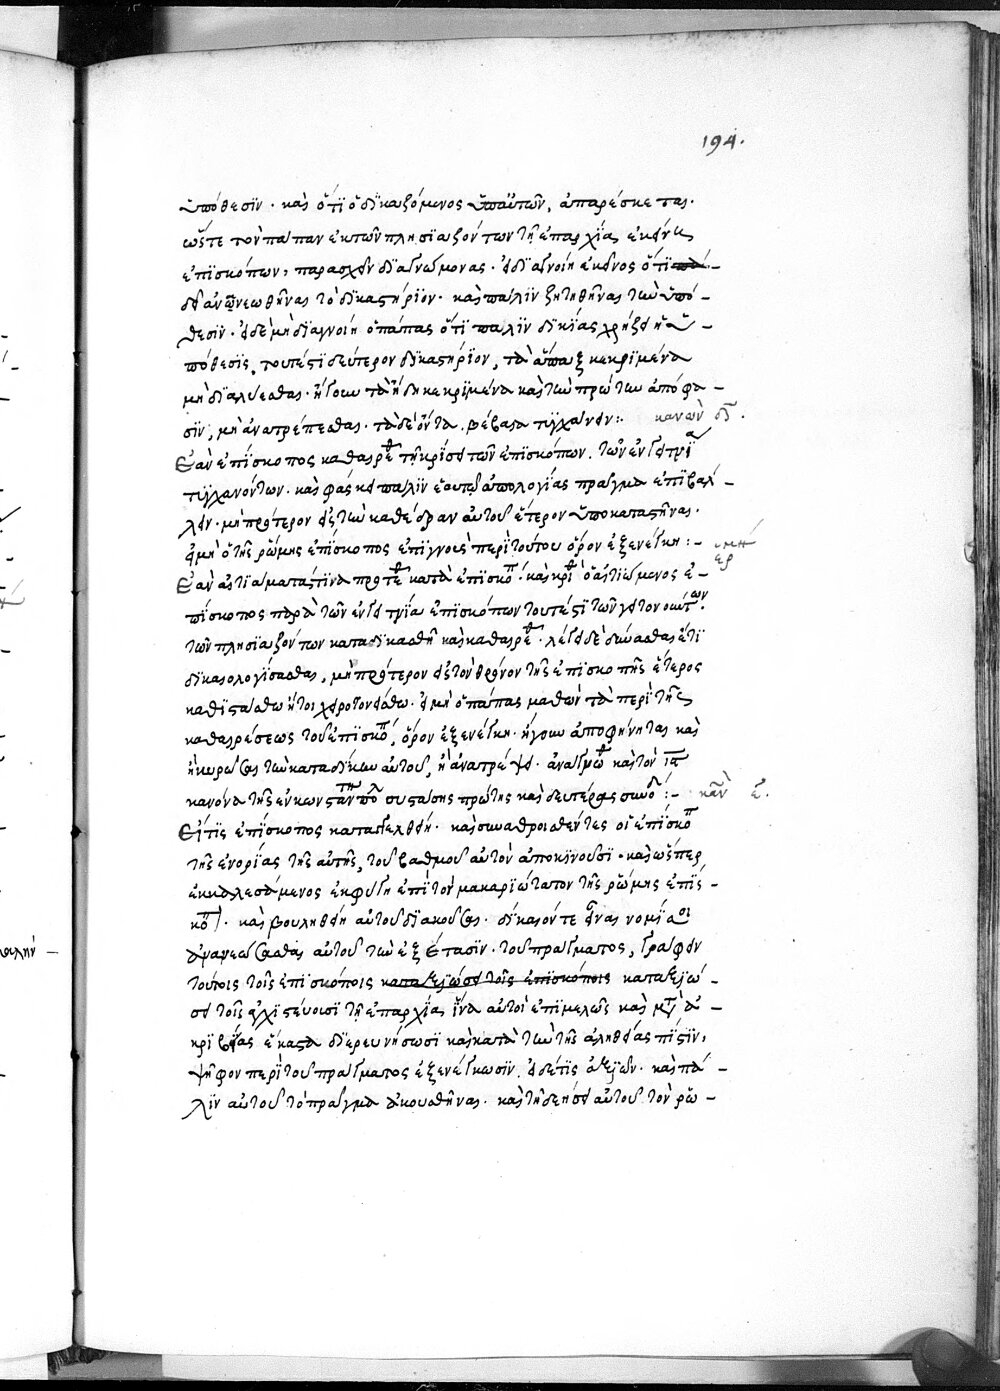 194.
ὑπόθεσϊν · καὶ ὅτϊ ὁ δϊκαζόμενος ὑπ' αὐτῶν, ἀπαρέσκεται·
ὥστε τὸν πάπαν ἐκ τῶν πλησϊαζόντων τῇ ἐπαρχίᾳ ἐκείνῃ
ἐπϊσκόπων, παρασχεῖν δϊαγνώμονας · εἰ δϊαγνοίη ἐκεῖνος ὅτϊ
δεῖ ἀνανεωθῆναι τὸ δϊκαστήρϊον · καὶ πάλϊν ζητηθῆναι τὴν ὑπό-
θεσϊν · εἰ δὲ μὴ δϊαγνοίη ὁ πάπας ὅτϊ πάλϊν δϊκϊας χρήζει ἡ ὑ-
πόθεσϊς, τουτέστϊ δεύτερον δϊκαστήρϊον, τὰ ἅπαξ κεκρϊμένα
μὴ δϊαλύεσθαι · ἤγουν τὰ ἤδη κεκρϊμένα καὶ τὴν πρώτην ἀπόφα-
σϊν, μὴ ἀνατρέπεσθαι · τὰ δὲ ὄντα, βέβαια τυγχάνειν :· κανὼν δ̅
Ἐὰν ἐπίσκοπος καθαιρεθ τῇ κρίσει τῶν ἐπϊσκόπων, τῶν ἐν γειτνϊα
τυγχανόντων · καὶ φάσκει πάλϊν ἑαυτῷ ἀπολογίας πρᾶγμα ἐπϊβάλ-
λειν · μὴ πρότερον εἰς τὴν καθέδραν αὐτοῦ ἕτερον ὑποκαταστῆναι ·
εἰ μὴ ὁ τῆς ῥώμης ἐπίσκοπος ἐπϊγνοὺς περὶ τούτου ὅρον ἐξενέγκη :- ἑρμή
Ἐὰν αἰτϊάματά τϊνα προτεθ κατὰ ἐπϊσκοπ · καὶ κρϊθ ὁ αἰτϊώμενος ἐ-
πίσκοπος παρὰ τῶν ἐν γειτνία ἐπϊσκόπων τουτέστϊ τῶν γειτονούντων
τῶν πλησϊαζόντων καταδϊκασθῆ καὶ καθαιρεθ · λέγει δὲ δύνασθαι ἔτϊ
δϊκαιολογίσασθαι, μὴ πρότερον εἰς τὸν θρόνον τῆς ἐπϊσκοπῆς ἕτερος
καθϊστάσθω ἤτοι χειροτονείσθω · εἰ μὴ ὁ πάπας μαθὼν τὰ περὶ τῆς
καθαιρέσεως τοῦ ἐπϊσκοπ, ὅρον ἐξενέγκη · ἤγουν ἀποφήνηται καὶ
ἢ κυρώσει τὴν καταδίκην αὐτοῦ, ἢ ἀνατρέψει · ἀνάγνωθ καὶ τὸν ι̅α̅
κανόνα τῆς ἐν κωνσταντῆ πόλ συστάσης πρώτης καὶ δευτέρας συνοδ :- κανὼν ε̅.
Εἴτϊς ἐπίσκοπος καταγγελθείη · καὶ συναθροισθέντες οἱ ἐπίσκοπ
τῆς ἐνορίας τῆς αὐτῆς, τοῦ βαθμοῦ αὐτὸν ἀποκϊνοῦσϊ · καὶ ὥσπερ
ἐκκαλεσάμενος ἐκφύγη ἐπὶ τὸν μακαρϊώτατον τῆς ῥώμης ἐπίσ-
κοπ · καὶ βουληθείη αὐτοῦ δϊακοῦσαι · δίκαιόν τε εἶναι νομίσοι
ἀνανεώσασθαι αὐτοῦ τὴν ἐξέτασϊν · τοῦ πράγματος, γράφειν
τούτοις τοῖς ἐπϊσκόποις καταξϊώσει τοῖς ἐπϊσκόποις καταξϊώ-
σει τοῖς ἀγχϊστεύουσϊ τῇ ἐπαρχίᾳ ἵνα αὐτοὶ ἐπϊμελῶς καὶ μετ' ἀ-
κρϊβείας ἕκαστα δϊερευνήσωσϊ καὶ κατὰ τὴν τῆς ἀληθείας πίστϊν,
ψῆφον περὶ τοῦ πράγματος ἐξενέγκωσϊν. εἰ δέ τϊς ἀξϊῶν · καὶ πά-
λϊν αὐτοῦ τὸ πρᾶγμα ἀκουσθῆναι · καὶ τῇ δεήσει αὐτοῦ τὸν ῥω-